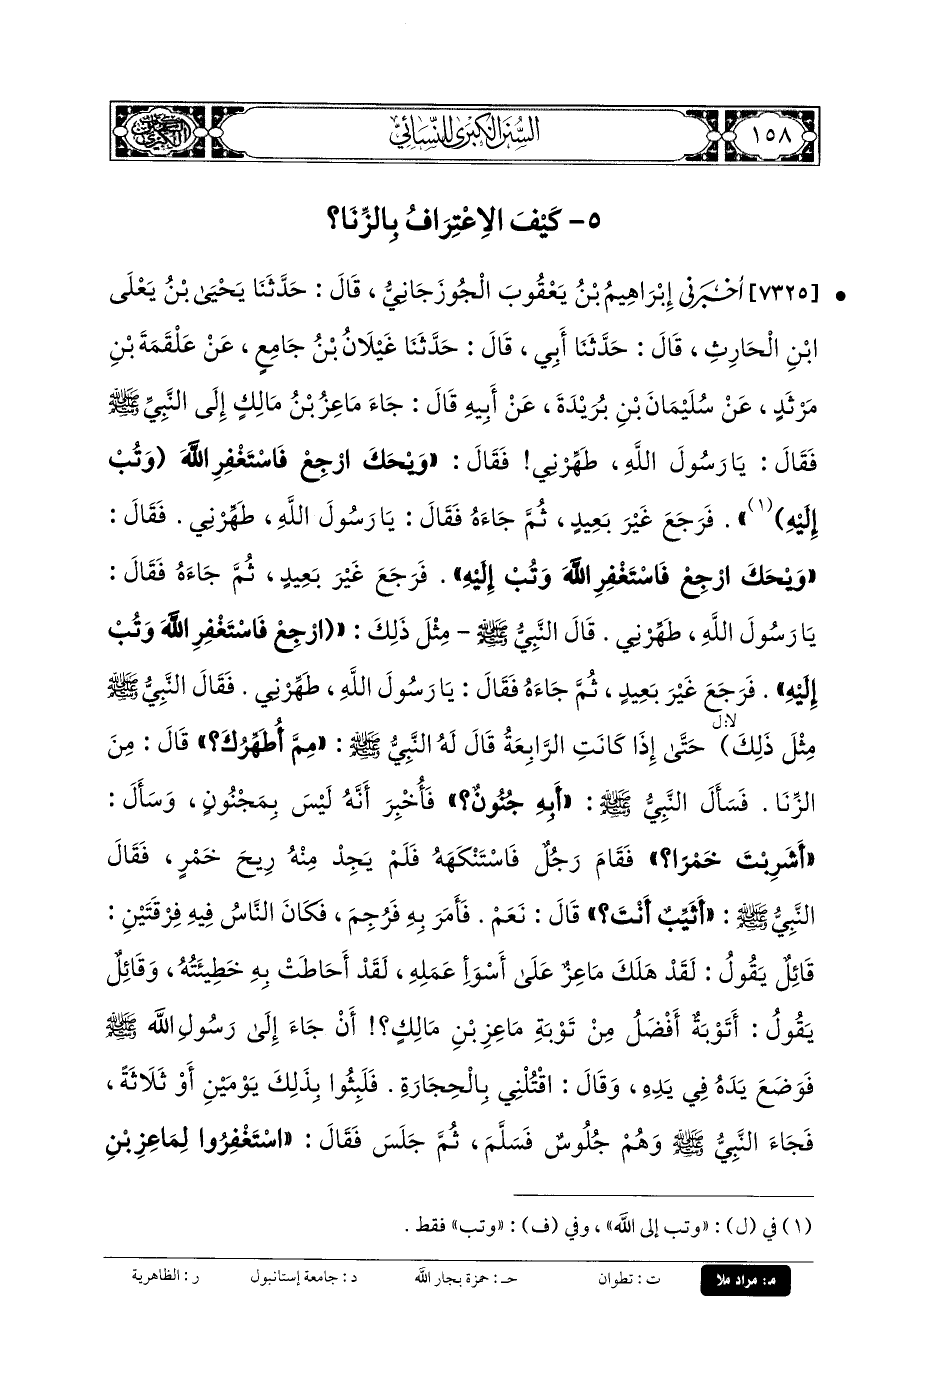 السنن الكبرى للنسائي
١٥٨
٥- كَيْفَ الِاعْتِرَافُ بِالزِّنَا؟
• [٧٣٢٥] أَخْبَرَنِي إِبْرَاهِيمُ بْنُ يَعْقُوبَ الْجُوزَجَانِيُّ، قَالَ : حَدَّثَنَا يَحْيَىٰ بْنُ يَعْلَى
ابْنِ الْحَارِثِ، قَالَ : حَدَّثَنَا أَبِي، قَالَ : حَدَّثَنَا غَيْلَانُ بْنُ جَامِعٍ، عَنْ عَلْقَمَةَ بْنِ
مَرْثَدٍ، عَنْ سُلَيْمَانَ بْنِ بُرَيْدَةَ، عَنْ أَبِيهِ قَالَ : جَاءَ مَاعِزُ بْنُ مَالِكٍ إِلَى النَّبِيِّ ﷺ
فَقَالَ : يَا رَسُولَ اللَّهِ، طَهِّرْنِي! فَقَالَ : «وَيْحَكَ ارْجِعْ فَاسْتَغْفِرِ اللَّهَ (وَتُبْ
إِلَيْهِ)(١)». فَرَجَعَ غَيْرَ بَعِيدٍ، ثُمَّ جَاءَهُ فَقَالَ : يَا رَسُولَ اللَّهِ، طَهِّرْنِي. فَقَالَ :
«وَيْحَكَ ارْجِعْ فَاسْتَغْفِرِ اللَّهَ وَتُبْ إِلَيْهِ». فَرَجَعَ غَيْرَ بَعِيدٍ، ثُمَّ جَاءَهُ فَقَالَ :
يَا رَسُولَ اللَّهِ، طَهِّرْنِي. قَالَ النَّبِيُّ ﷺ - مِثْلَ ذَلِكَ : «(ارْجِعْ فَاسْتَغْفِرِ اللَّهَ وَتُبْ
إِلَيْهِ». فَرَجَعَ غَيْرَ بَعِيدٍ، ثُمَّ جَاءَهُ فَقَالَ : يَا رَسُولَ اللَّهِ، طَهِّرْنِي. فَقَالَ النَّبِيُّ ﷺ
مِثْلَ ذَلِكَ) حَتَّىٰ إِذَا كَانَتِ الرَّابِعَةُ قَالَ لَهُ النَّبِيُّ ﷺ : «مِمَّ أُطَهِّرُكَ؟» قَالَ : مِنَ
الزِّنَا. فَسَأَلَ النَّبِيُّ ﷺ : «أَبِهِ جُنُونٌ؟» فَأُخْبِرَ أَنَّهُ لَيْسَ بِمَجْنُونٍ، وَسَأَلَ :
«أَشَرِبْتَ خَمْرًا؟» فَقَامَ رَجُلٌ فَاسْتَنْكَهَهُ فَلَمْ يَجِدْ مِنْهُ رِيحَ خَمْرٍ، فَقَالَ
النَّبِيُّ ﷺ : «أَثَيِّبٌ أَنْتَ؟» قَالَ : نَعَمْ. فَأَمَرَ بِهِ فَرُجِمَ، فَكَانَ النَّاسُ فِيهِ فِرْقَتَيْنِ :
قَائِلٌ يَقُولُ : لَقَدْ هَلَكَ مَاعِزٌ عَلَىٰ أَسْوَأِ عَمَلِهِ، لَقَدْ أَحَاطَتْ بِهِ خَطِيئَتُهُ، وَقَائِلٌ
يَقُولُ : أَتَوْبَةٌ أَفْضَلُ مِنْ تَوْبَةِ مَاعِزِ بْنِ مَالِكٍ؟! أَنْ جَاءَ إِلَىٰ رَسُولِ اللَّهِ ﷺ
فَوَضَعَ يَدَهُ فِي يَدِهِ، وَقَالَ : اقْتُلْنِي بِالْحِجَارَةِ. فَلَبِثُوا بِذَلِكَ يَوْمَيْنِ أَوْ ثَلَاثَةً،
فَجَاءَ النَّبِيُّ ﷺ وَهُمْ جُلُوسٌ فَسَلَّمَ، ثُمَّ جَلَسَ فَقَالَ : «اسْتَغْفِرُوا لِمَاعِزِ بْنِ
(١) في (ل) : «وتب إلى اللَّه»، وفي (ف) : «وتب» فقط.
مـ: مراد ملا ت : تطوان حـ : حمزة بجار اللَّه د : جامعة إستانبول ر : الظاهرية